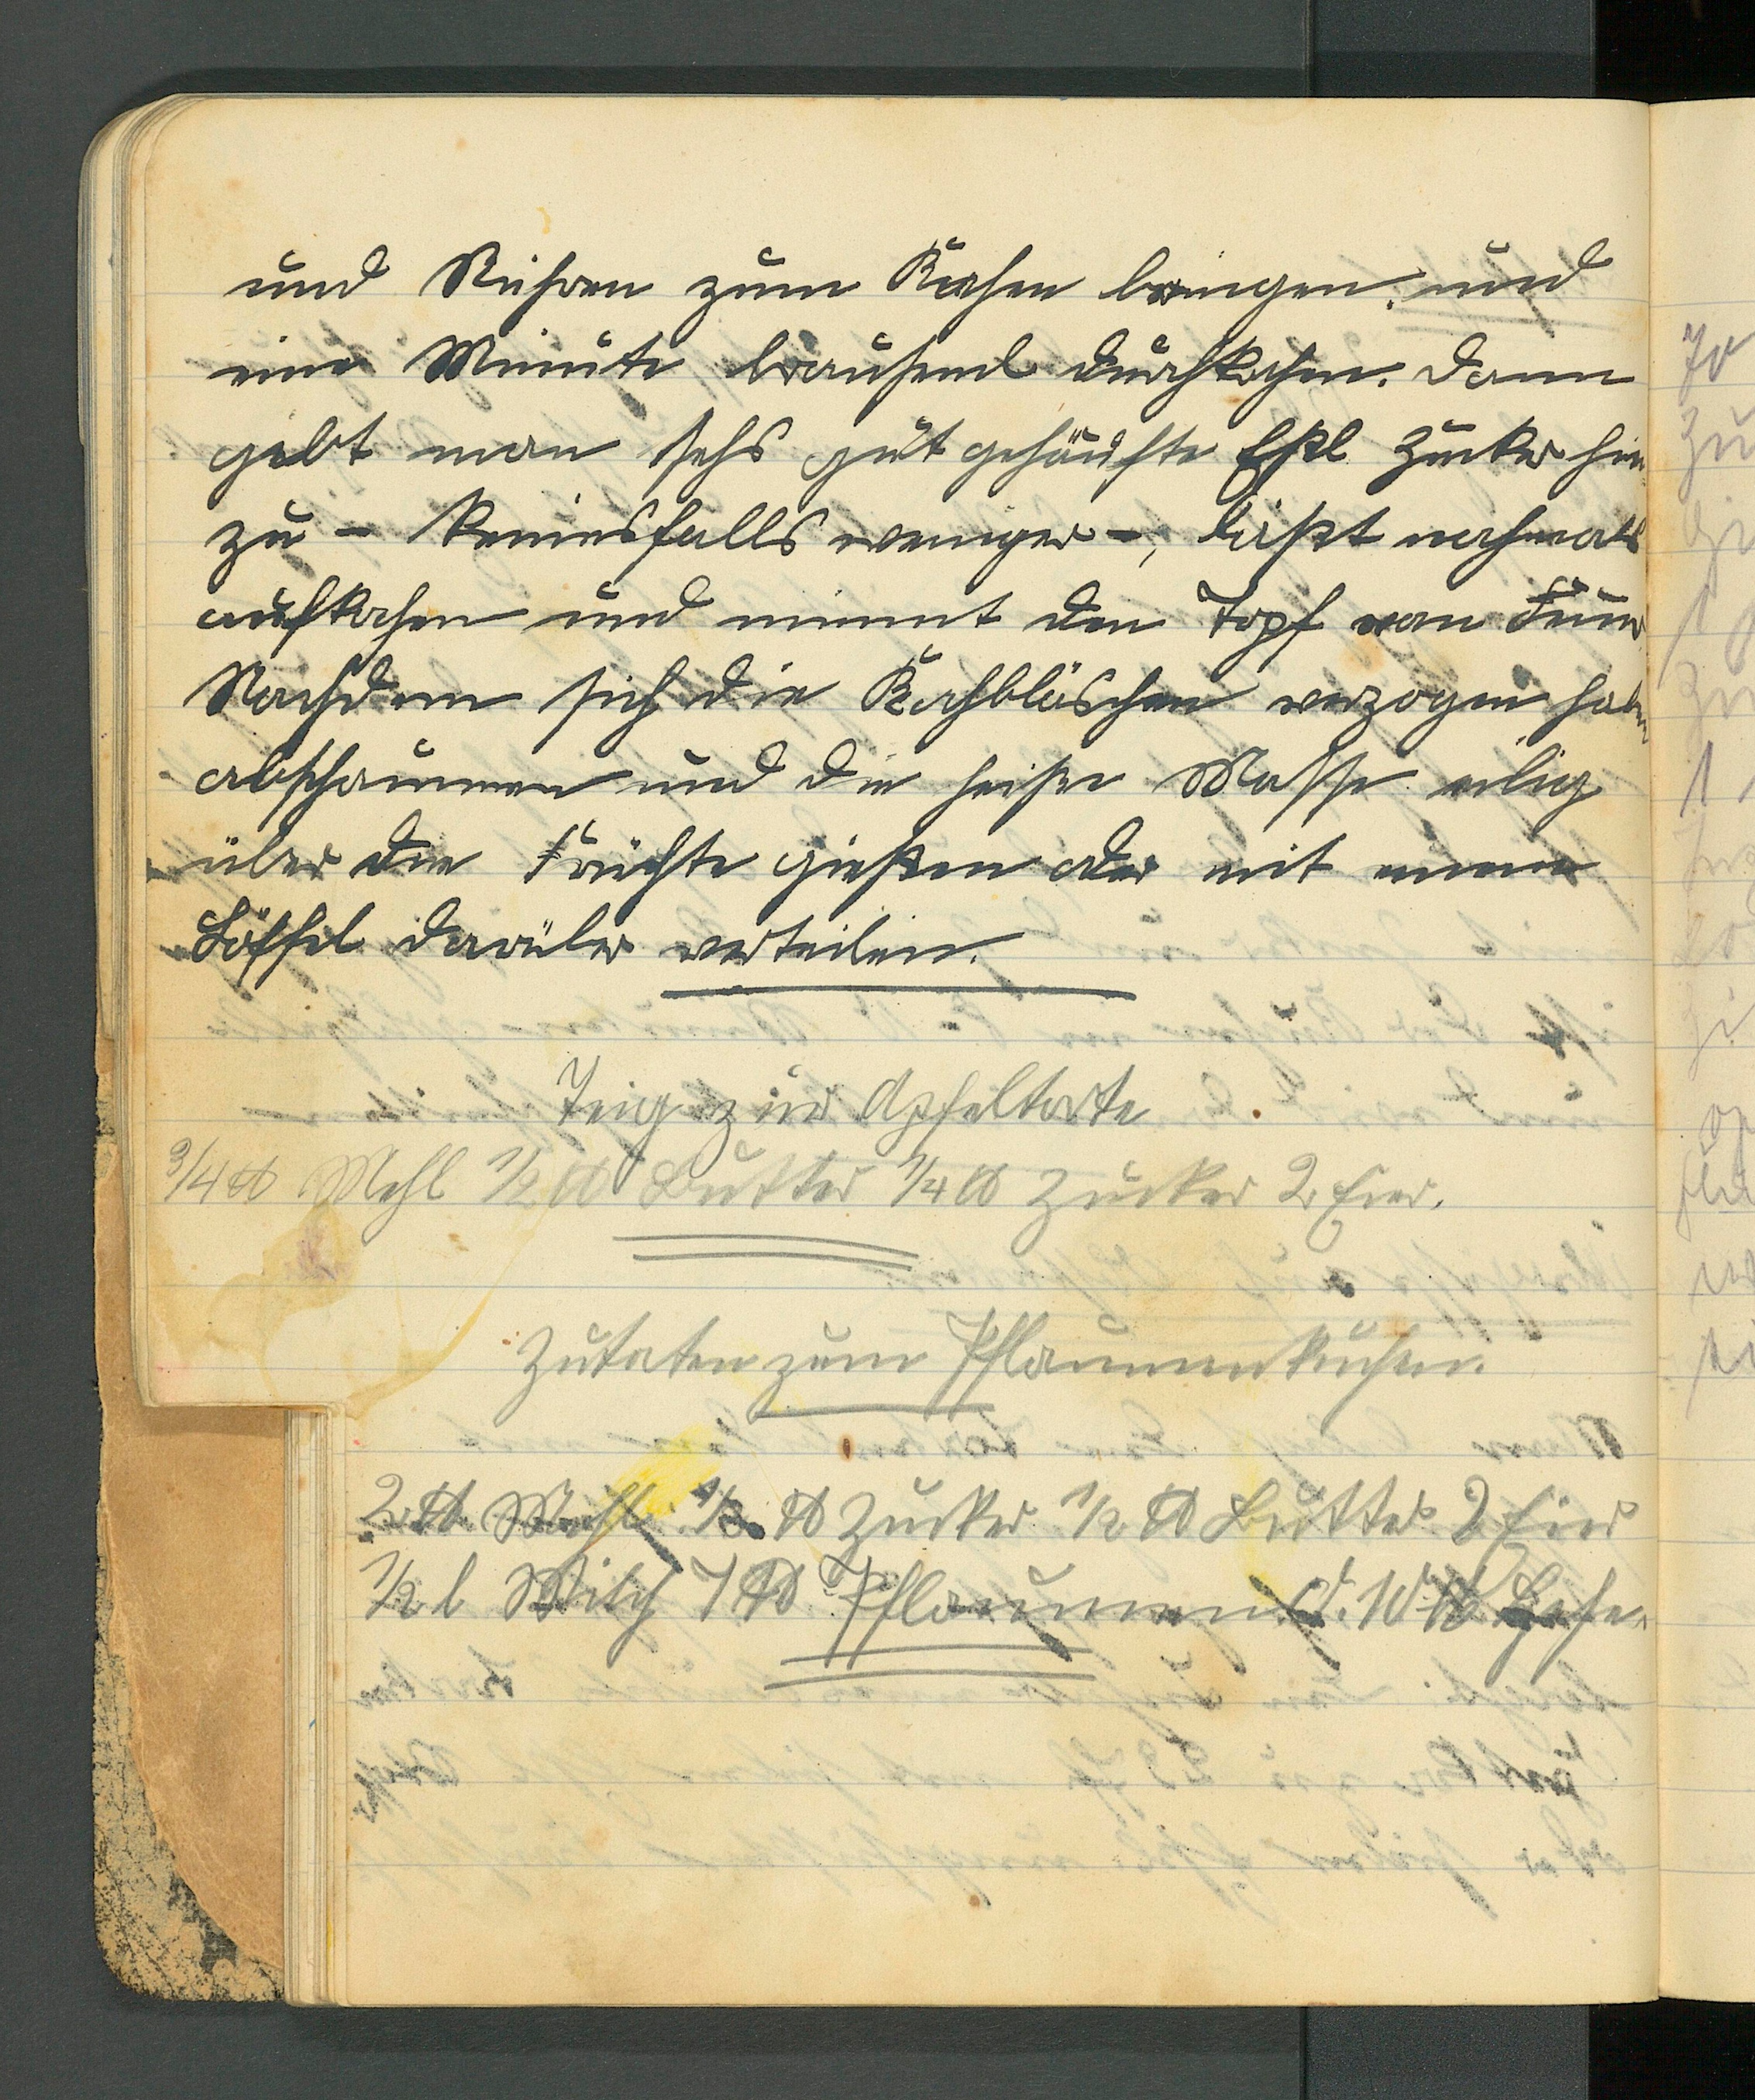 und Rühren zum Kochen bringen und
eine Minute brausend durchkochen. Dann
gibt man sechs gut gehäufte Eßl Zucker hin
zu - keinesfalls weniger -, läßt nochmals
aufkochen und nimmt den Topf vom Feuer
Nachdem sich die Kochbläschen verzogen haben
abschäumen und die heiße Masse eilig
über die Früchte gießen oder mit einem
Löffel darüber verteilen.
Teig zur Apfeltorte
3/4 ℔ Mehl 1/2 ℔ Butter 1/4 ℔ Zucker 2 Eier.
Zutaten zum Pflaumenkuchen.
2 ℔ Mehl 1/2 ℔ Zucker 1/2 ℔ Butter 2 Eier
1/2 l Milch 7 ℔ Pflaumen Hefe